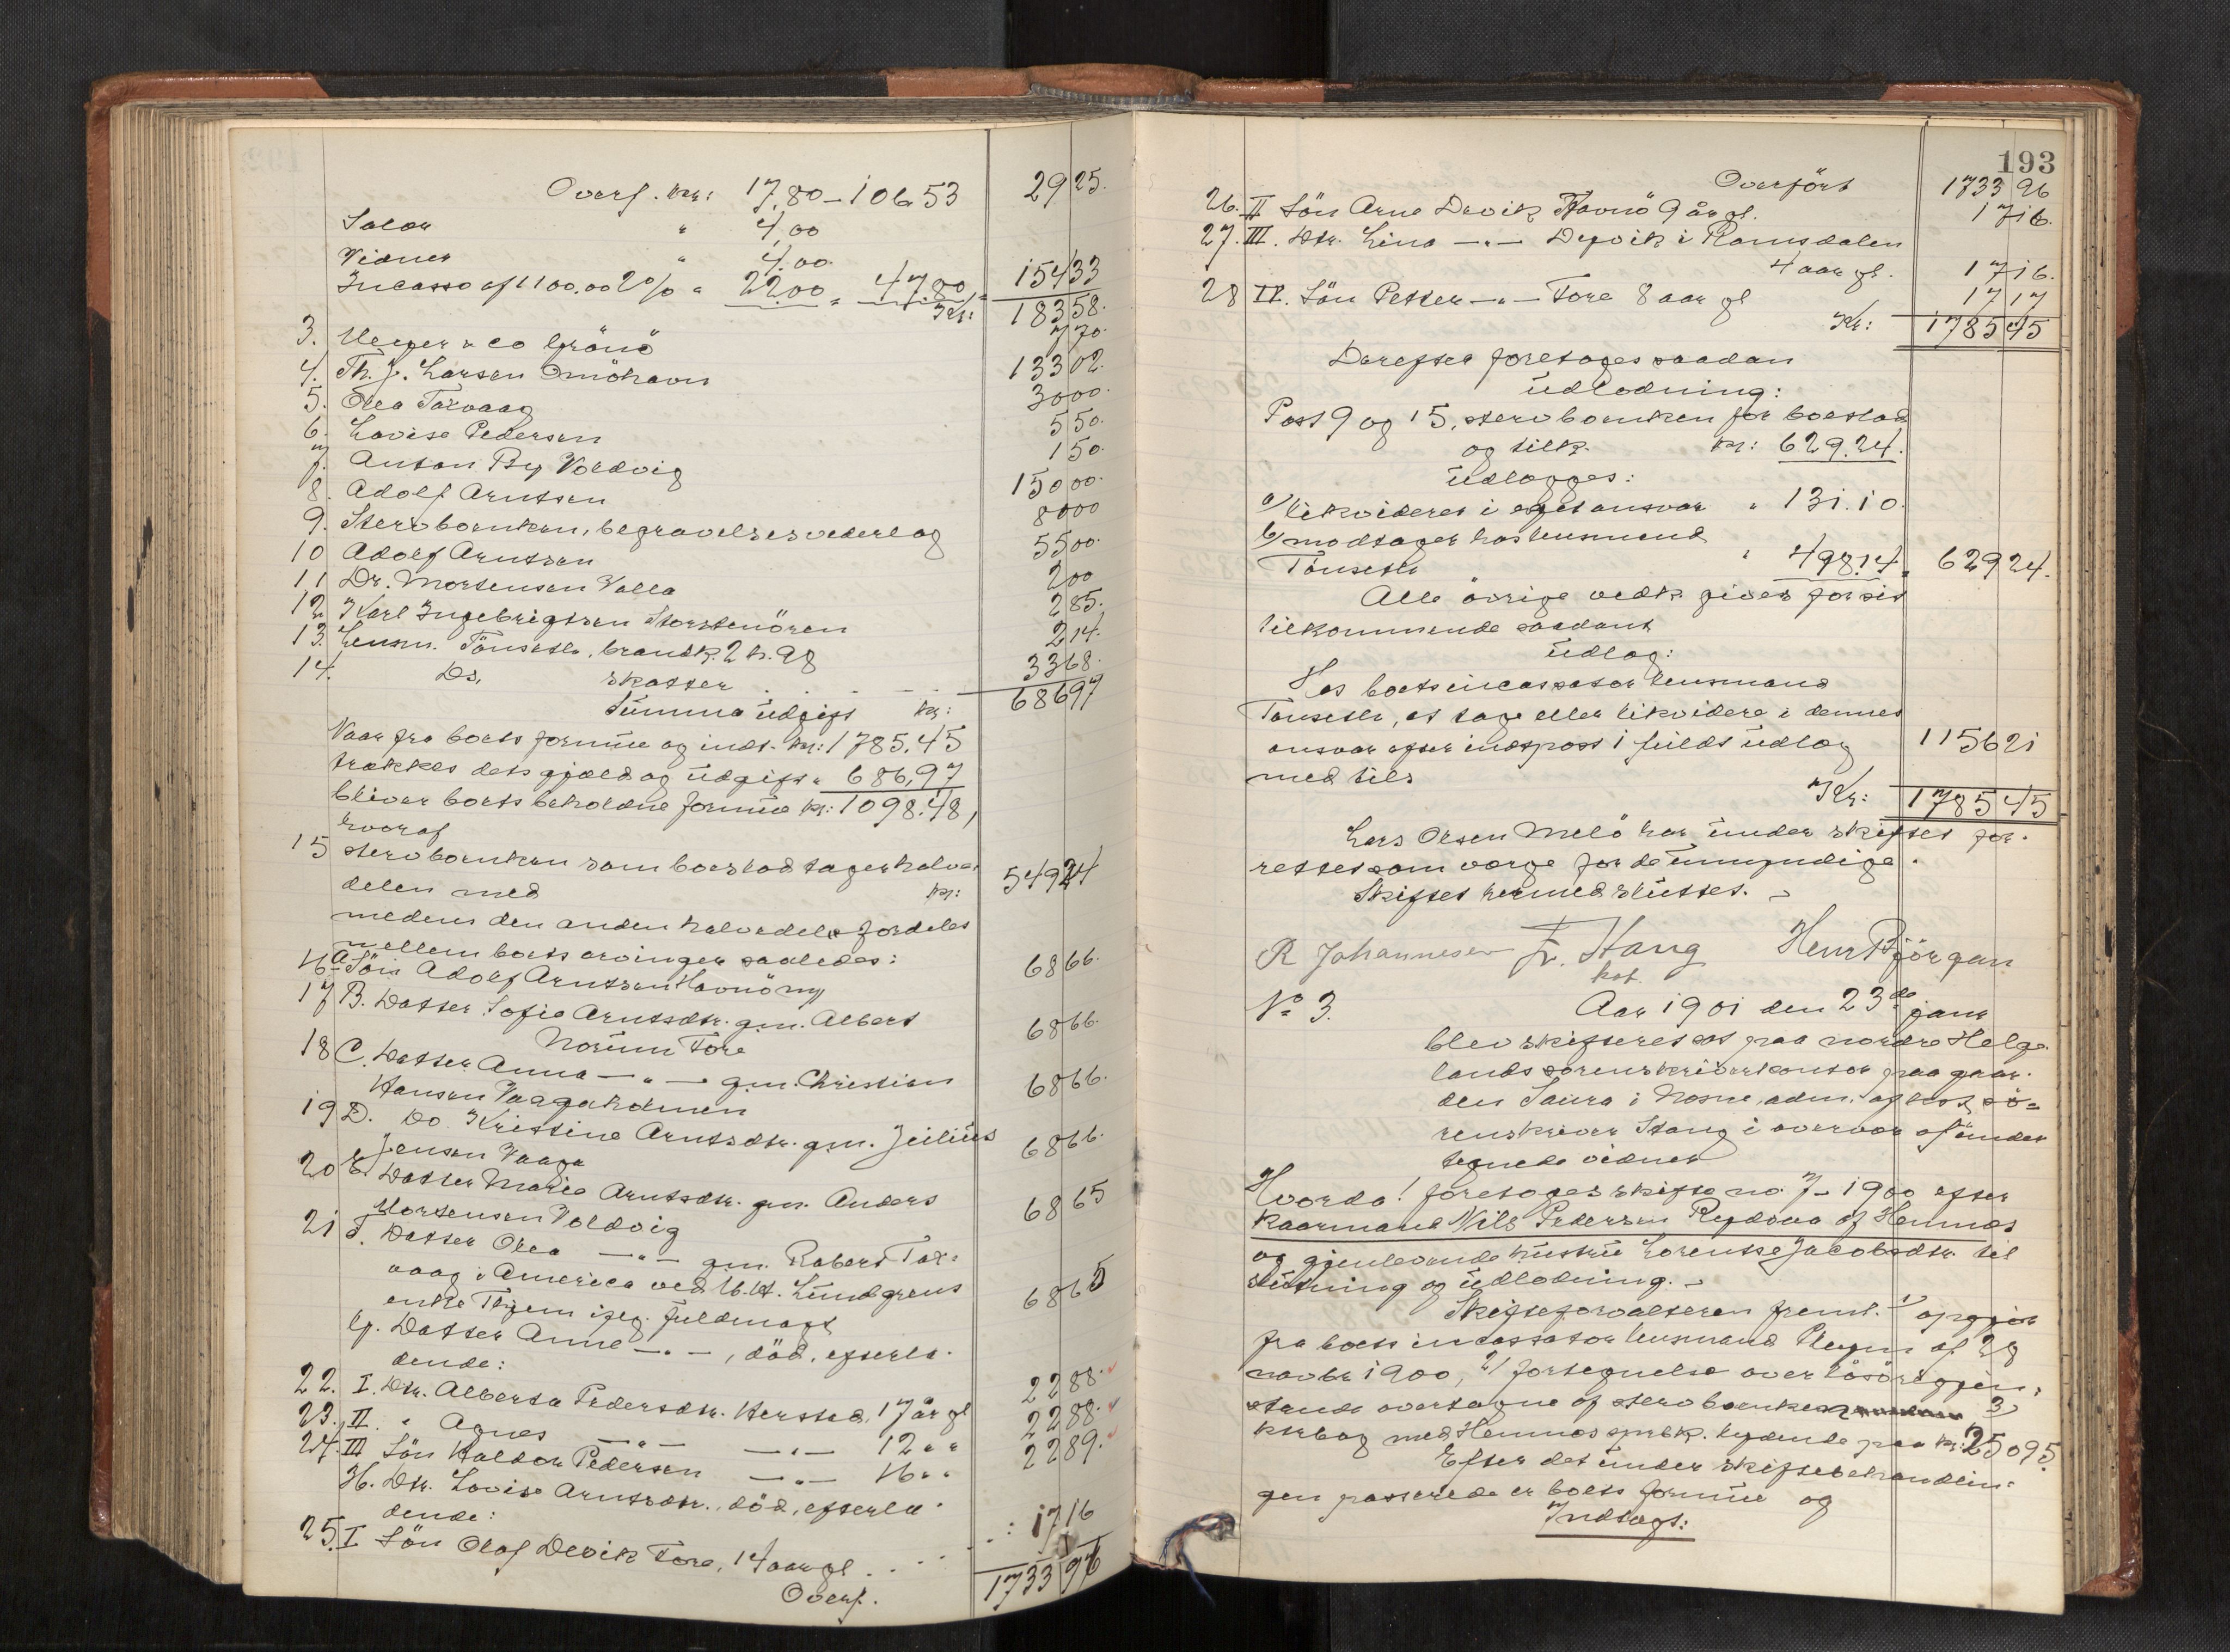 Overf. Kr: 17.80 – 106.53 29 25.
Salær " 4,00
Vidner " 4.00
Incasso af 1100.00 2% " 22.00 " 47.80 154 33
Kr: 183 58.
3. Meyer & co Grönö 7 70.
4. Th. J. Larsen Omöhavn 133 02.
5. Olea Torvaag 30 00.
6. Lovise Pedersen 5 50.
7. Anton By Voldvig 1 50.
8. Adolf Arntsen 150 00.
9. Stervboenken, begravelsesvederlag 80 00
10 Adolf Arntsen 55 00.
11 Dr. Mortensen Valla 2 00
12 Karl Ingebrigtsen Storstenören 2 85.
13. Lensm. Tönseth, brandk. 2 h. 98 2 14.
14. Do. skatter 33 68.
Summa udgift kr: 686 97
Naar fra boets formue og indt. kr: 1785.45
trækkes dets gjæld og udgift " 686,97
bliver boets beholdne formue kr: 1098.48,
hvoraf
15 stervboenken som boeslod tager halve
delen med kr: 549 24
medens den anden halvedel fordeles
mellem boets arvinger saaledes:
16 A. Sön Adolf Arntsen Havnö my 68 66.
17 B. Datter Sofie Arntsdtr. gm. Albert
Norum Tore 68 66.
18 C. Datter Anna — " — gm. Christian
Hansen Vaagaholmen 68 66.
19 D. Do Kristine Arntsdtr. gm. Julius
Jensen Vaaga 68 66.
20 E. Datter Marie Arntsdtr. gm. Anders
Mortensen Voldvig 68 65
21 F. Datter Olea — " — gm. Robert Tor-
vaag i America ved M. A. Lundgrens
enke Thjem ifølg. fuldmagt 68 65
G. Datter Anne — " —, död, efterla-
dende:
22. I. Dtr. Alberta Pedersdtr. Herstad, 17 år gl 22 88.
23. II. " Agnes — " — — " — 12 " " 22 88.
24. III Sön Haldor Pedersen — " — 16 " " 22 89.
H. Dtr. Lovise Arntsdtr., död, efterla-
dende:
25. I Sön Olaf Devik Tore, 14 aar gl . . . . : 17 16
Overf. 1733 96
193
Overfört 1733 96
26. II Sön Arne Devik Havnö 9 år gl. 17 16.
27. III. Dtr. Lina — " — Dypvik i Ramsdalen
4 aar gl. 17 16.
28 IV. Sön Petter — " — Tore 8 aar gl 17 17
Kr: 1785 45
Derefter foretages saadan
udlodning:
Post 9 og 15, stervboenken for boeslod
og tilk. kr: 629.24.
udlægges:
a/ likvideres i eget ansvar " 131.10.
b/ modtager hos lensmand
Tönseth " 498.14 " 629 24.
Alle övrige vedk. gives for sit
tilkommende saadant
udlæg:
Hos boets incassator lensmand
Tönseth, at tage eller likvidere i dennes
ansvar efter indtpost i fuldt udlæg
med tils 1156 21
Kr: 1785 45
Lars Olsen Melö har under skiftet for-
rettet som værge for de umyndige.
Skiftet hermed sluttet. –
R Johannesen Fr. Stang Henr Björgan
kst.
No 3. Aar 1901 den 23de janr
blev skifteret sat paa nordre Helge-
lands sorenskriverkontor paa gaar-
den Saura i Nesne, adm. af kst. so-
renskriver Stang i overvær af under
tegnede vidner
Hvorda! foretoges skifte no 7 – 1900 efter
kaarmand Nils Pedersen Rydsaa af Hemnes
og gjenlevende hustru Lorentse Jacobsdtr. til
slutning og udlodning. –
Skifteforvalteren freml. 1/ opgjör
fra boets incassator lensmand Heyn af 28
novbr 1900, 2/ fortegnelse over lösöregjen-
stande overtagne af stervboenken 3)
ktrbog med Hemnes sprbk. lydende paa kr: 250 95.
Efter det under skiftebehandlin-
gen passerede er boets formue og
Indtægt: